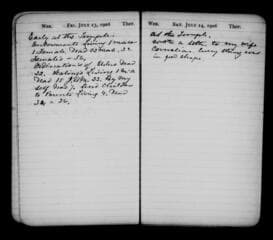 Wea. FRI. JULY 13, 1906 Ther.
Early at the Temple.
Endowments Living 1 male
1 Female, Dead 22 male, 32
Females = 56.
Ordinations of Elders Dead
22. Sealings Living 1 &
Dead 18
self Dead Children
to Parents Living 4. Dead
= 26.
Wea. SAT. JULY 14, 1906 Ther.
At the Temple.
wrote a letter to my wife
Cornelia. Every thing was
in good shape.